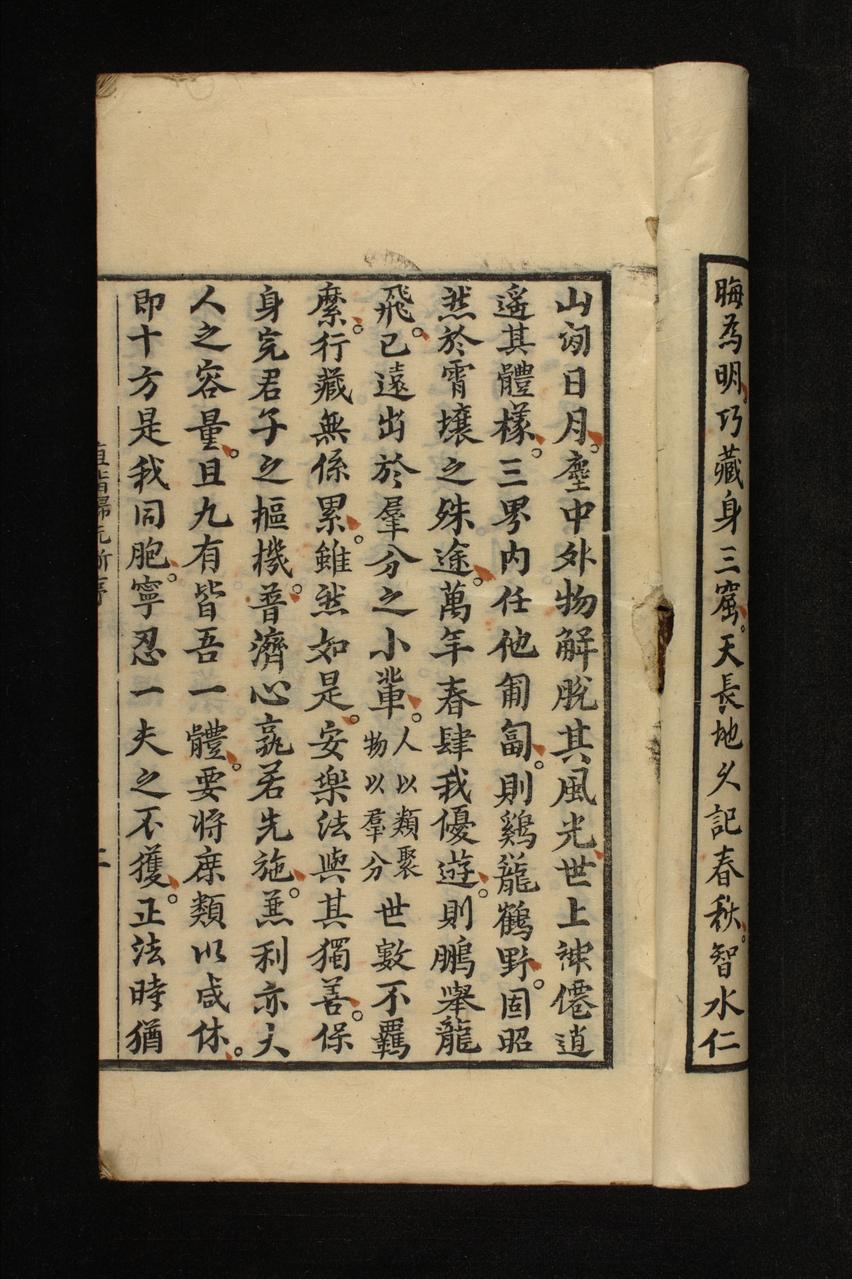 晦為明巧藏身三窟。天長地久記春秋。智水仁
山洞日月。塵中外物解脫其風光世上神僊逍
遙其體樣。三界内任他匍匐。則鷄籠鶴野。固昭
然於霄壤之殊途萬年春肆我優遊。則鵬舉龍
飛。已遠出於羣分之小輩。人以類聚物以羣分世數不羈
縻。行藏無係累。雖然如是。安樂法與其獨善。保
身完君子之樞機。普濟心孰若先施。兼利亦大
人之容量。且九有皆吾一體。要将庶類以咸休。
即十方是我同胞。寧忍一夫之不獲。正法時猶
直指歸元新序
二